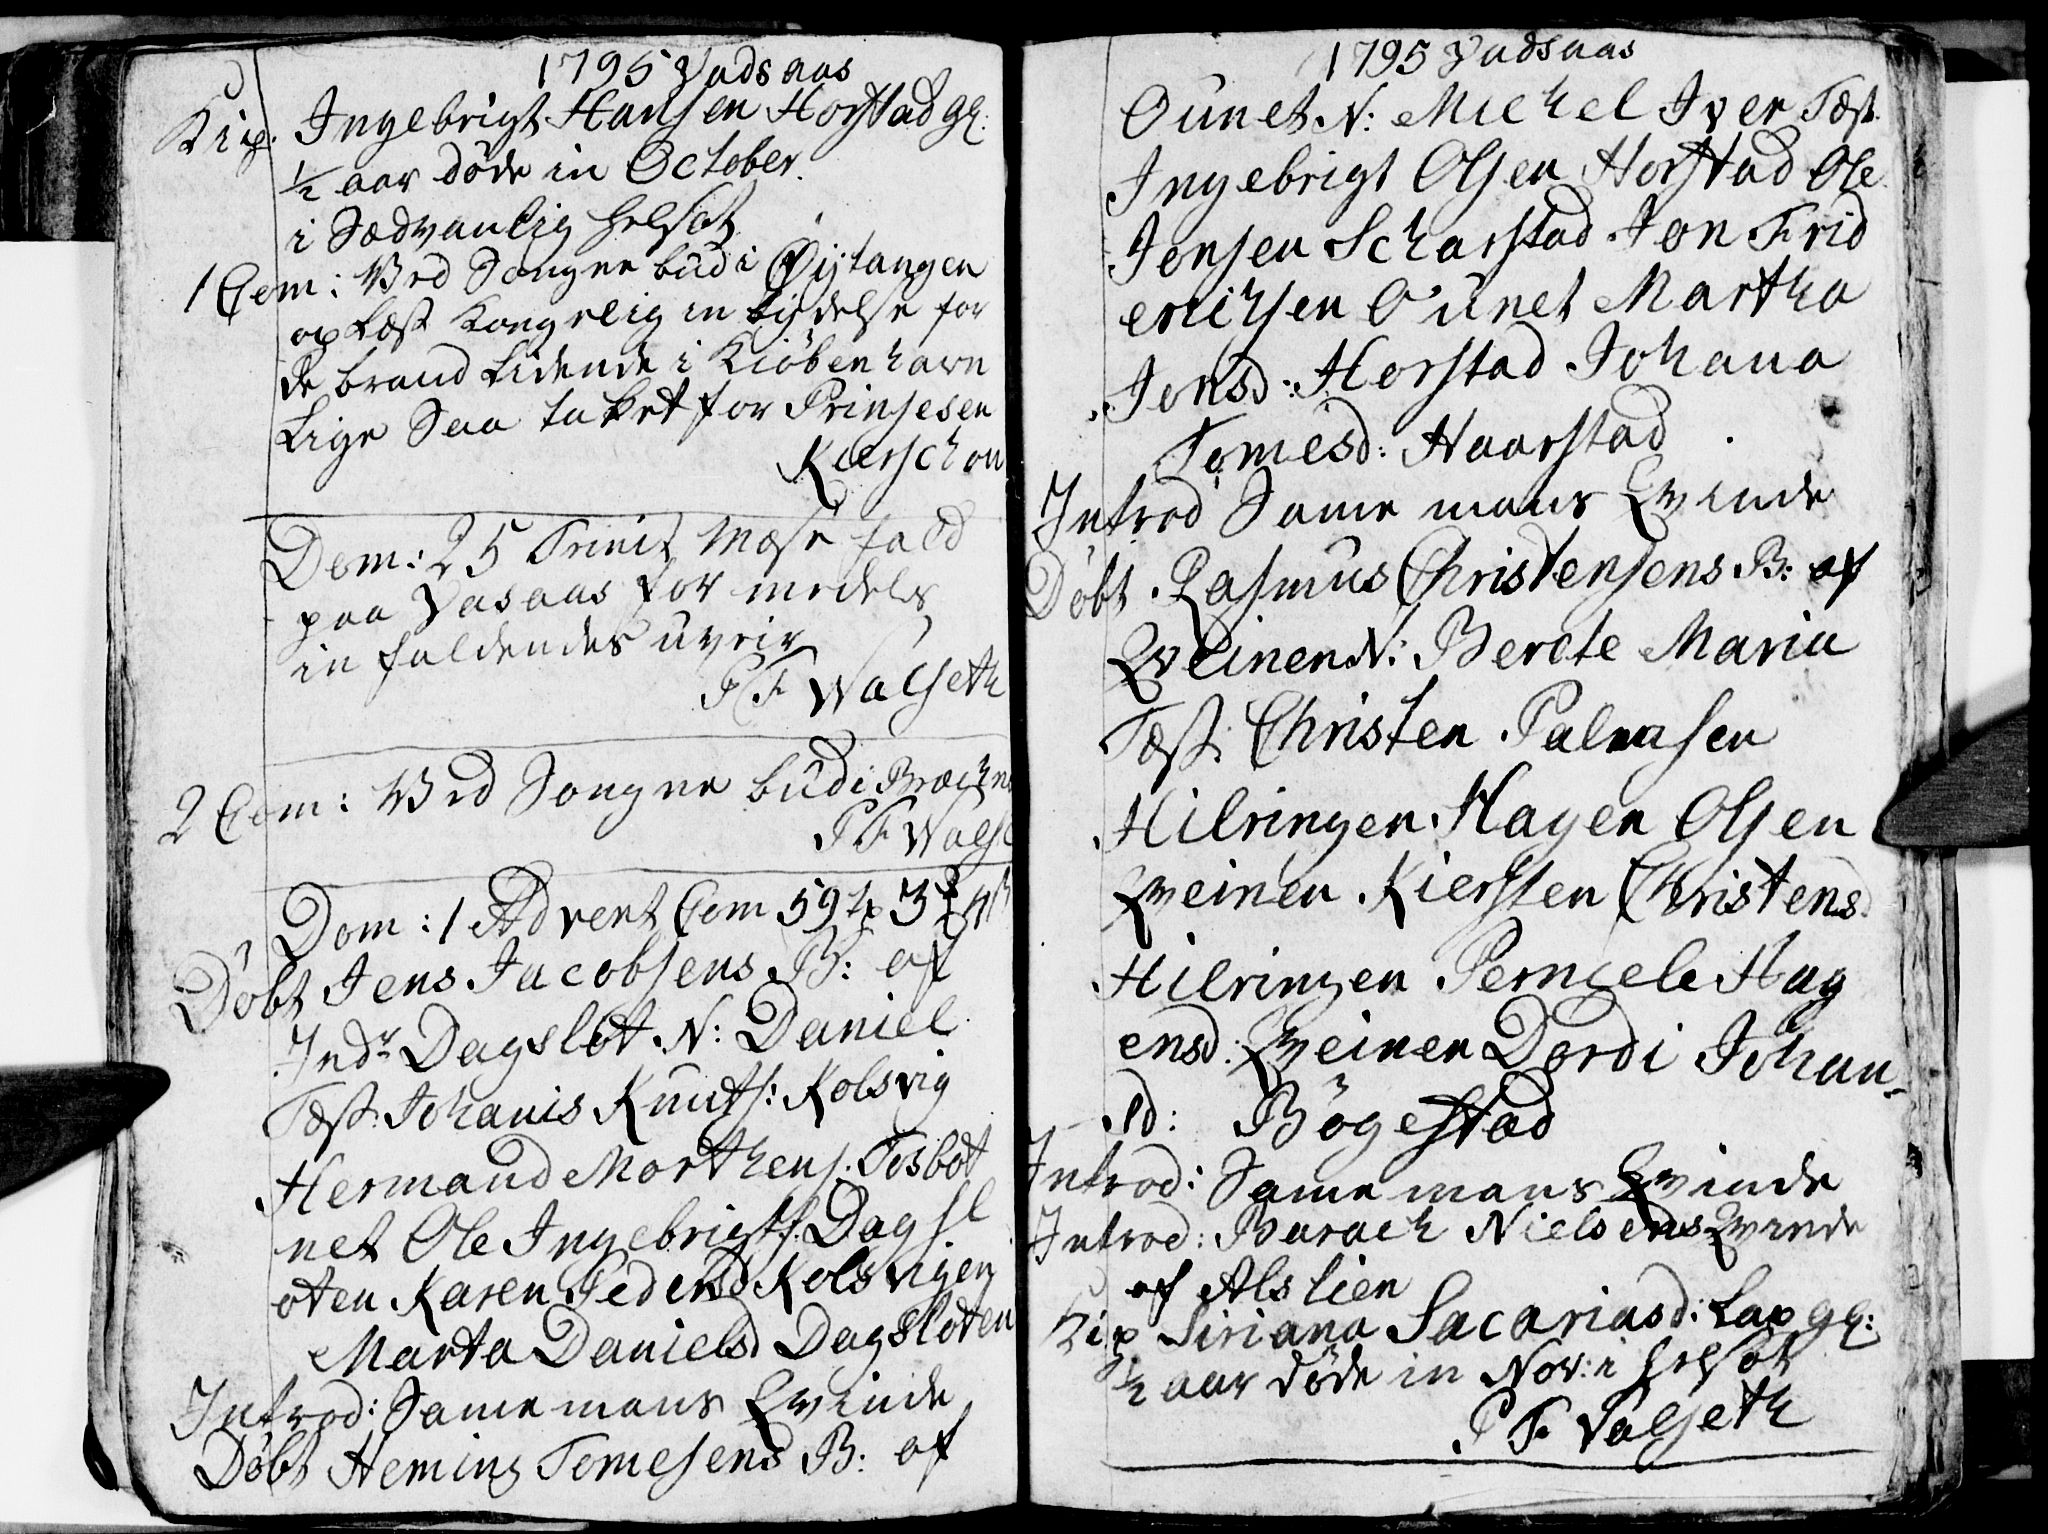 1795 Vadsaas
Kip. Ingebrigt Hansen Horstad gl:
1/2 aar döde in October.
i Sædvanlig helsot
1 Com: Ved Sougne bud i Øistangen
op Læst Kongelig in bydelse for
de brand Lidende i Kiöbenhavn
Lige Saa taket for Prinsesen
Kierschou
Dom: 25 Trinit Mæse fald
paa Vasaas for medels
in faldendes uveir
P F Walseth
2 Com: Ved Sougne bud i Brækne
P F Walse
Dom: 1 Advent Com 59
Döbt Jens Jacobsens B: af
Indr Dagslot N: Daniel
Tæst: Johanis Knuts: Kolsvig
Hermand Morthens: Tosbot
net Ole Ingebrigts: Dagsl
oten Karen Pedersd Kolsvigen
Marta Danielsd Dagsloten
Introd: Same mans Qvinde
Döbt Heming Tomesens B: af
1795 Vadsaas
Ounet N: Michel Iver Tæst.
Ingebrigt Olsen Horstad Ole
Jensen Scharstad Jon Frid
erichsen Ounet Martha
Jonsd: Horstad Johana
Tomesd: Haarstad
Introd Same mans Qvinde
Döbt Rasmus Christensens B: af
Qveinen N: Berete Maria
Tæst: Christen Palmasen
Hilringen Hagen Olsen
Qveinen Kiersten Christensd
Hilringen Pernele Hag
ensd: Qveinen Dordi Johan-
sd: Bögestad
Introd: Same mans Qvinde
Introd: Barach Nielsens Qvinde
af Alslien
Kip Siriana Sacariasd: Lap gl:
1/2 aar döde in Nov: i helsot
P F Valseth